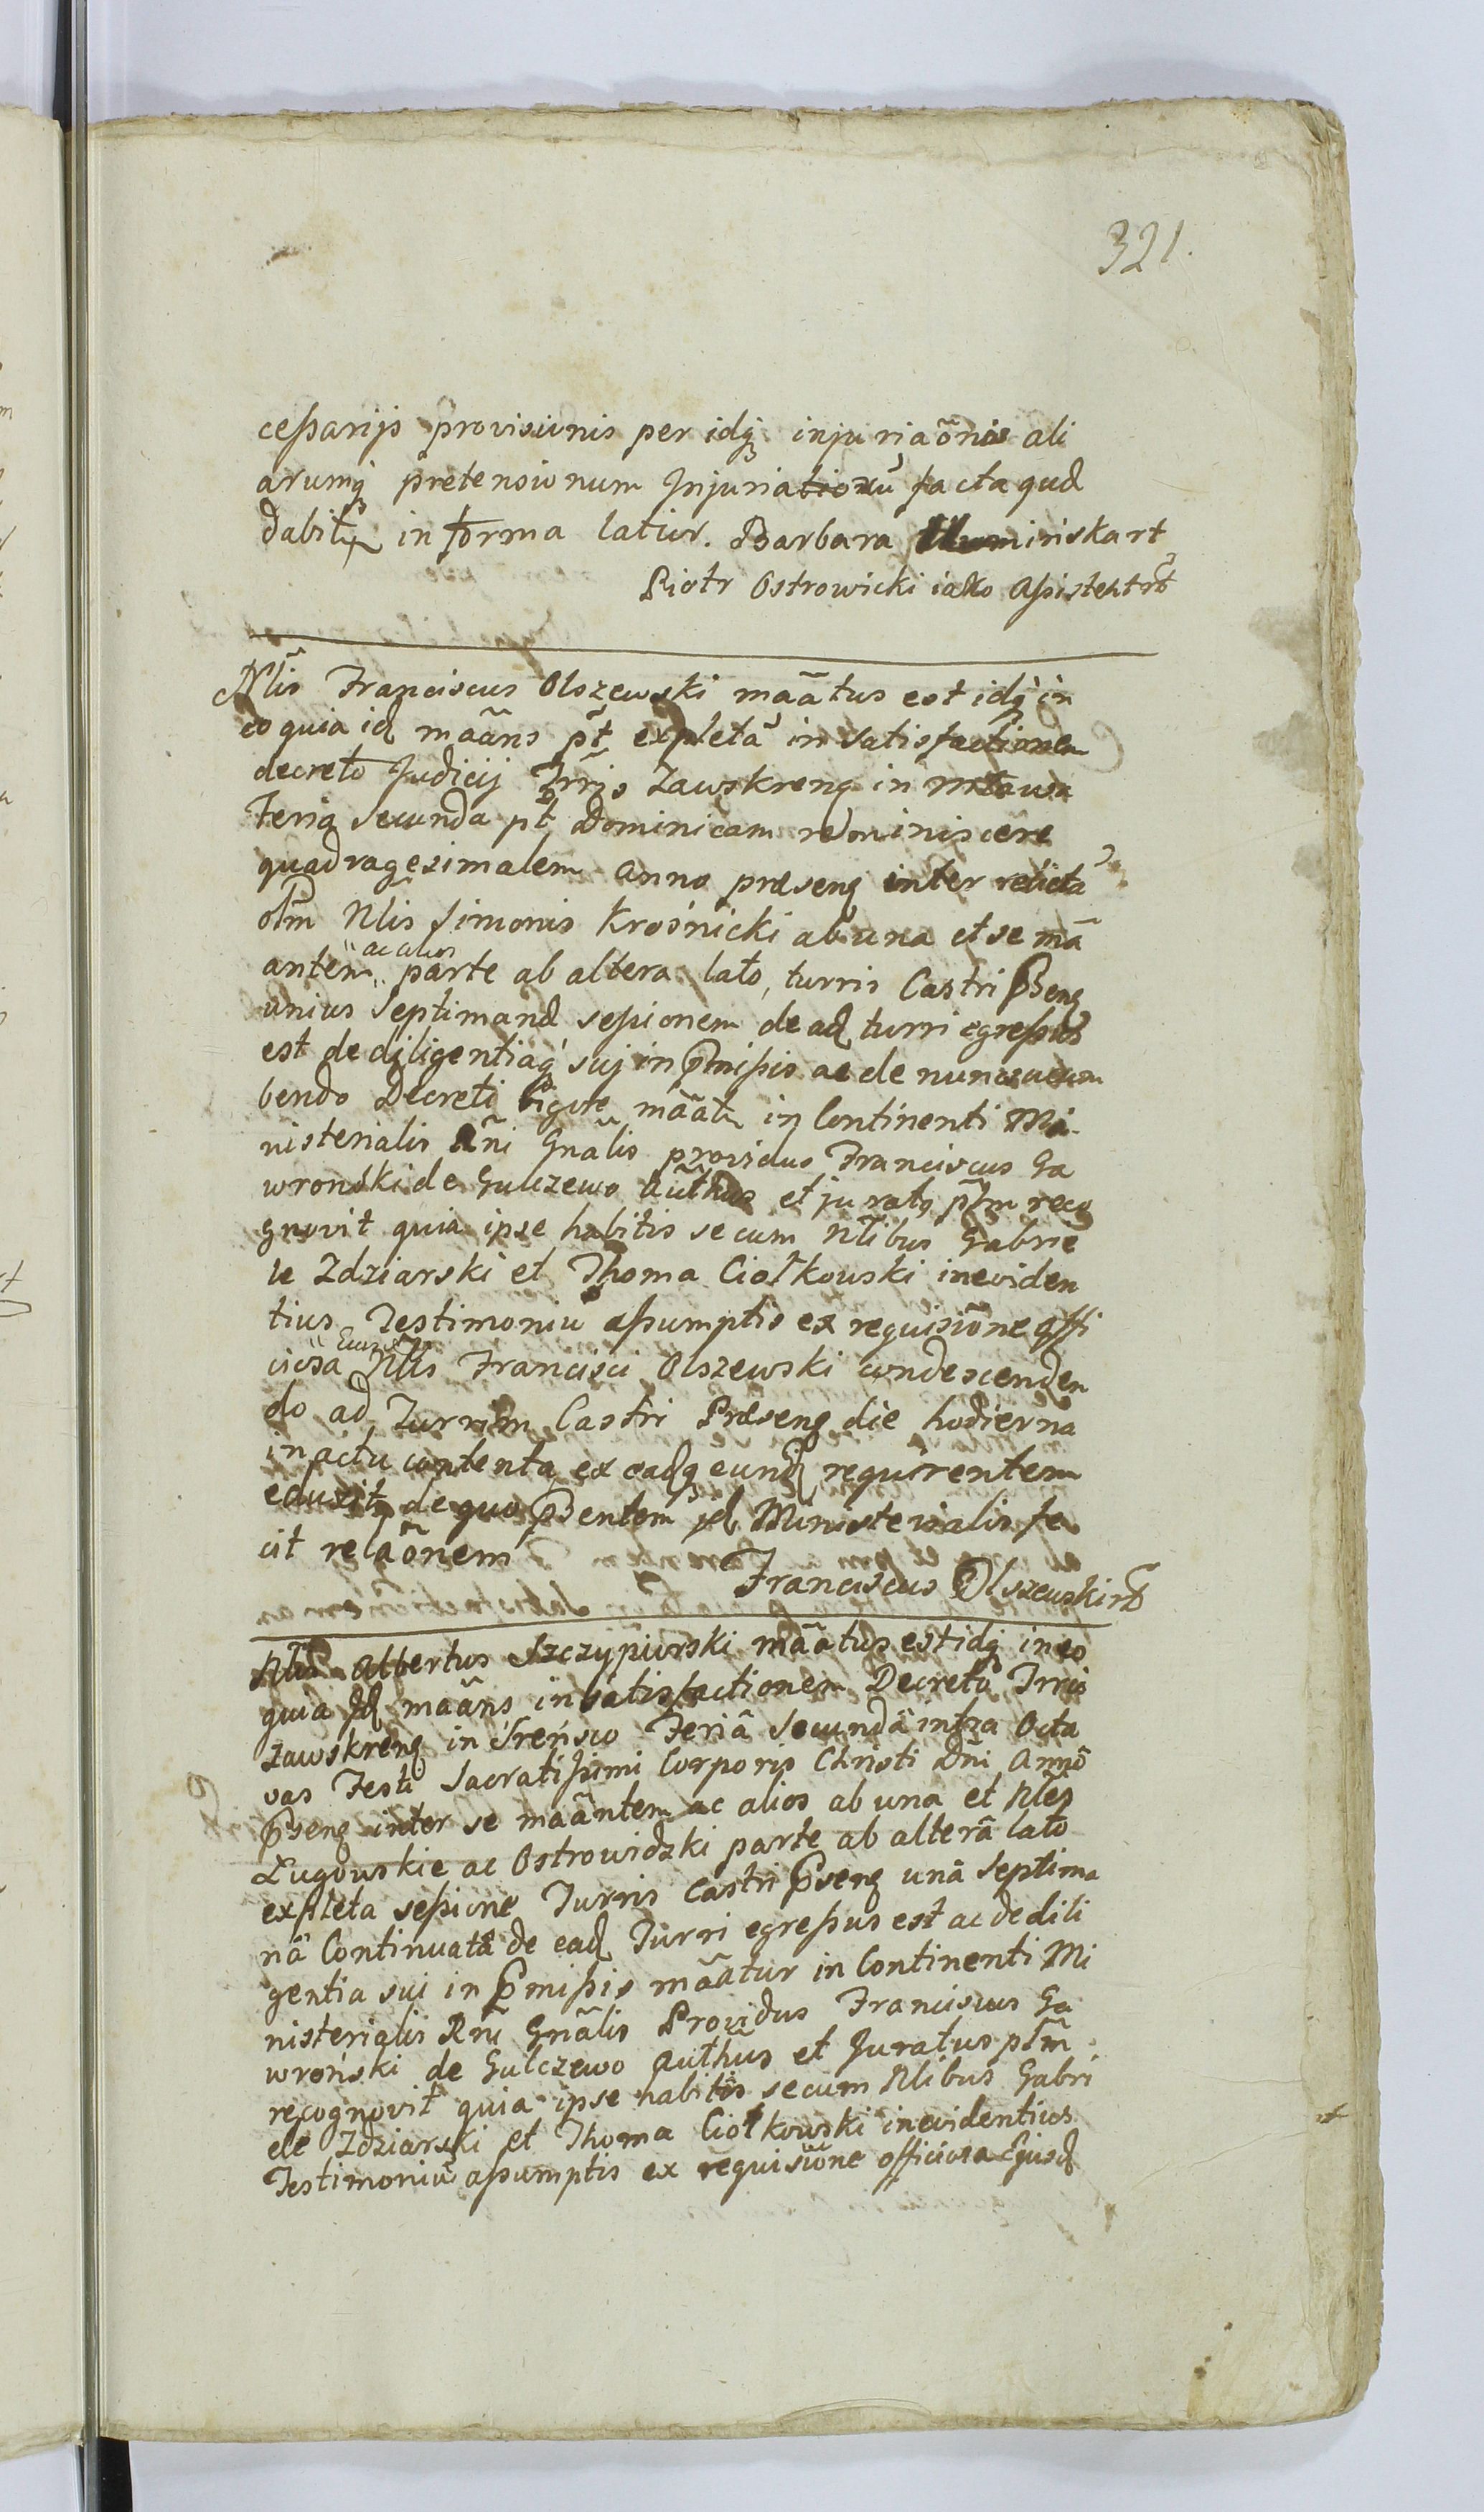 321.
ceſsarijs provisionis per idq̨ injuriaõnis ali
arumq̨ pretensionum Injuriationũ facta qued
dabitr in forma latiur. Barbara
Piotr Ostrowicki iako Aſsistent
Nlis̃ Franciscus Olszewski mãatus est idq̨ in
eo quia id mãans pt̃ expletã in satisfactionem
decreto Judicij Trrjs Zawskreng in Mława
Feria secunda pt̃ Dominicam reminiscere
quadragesimalem Anno præseng inter relictã
olm̃ Nlis Simonis Krośnicki ab una et se mã
antem ac alios parte ab altera lato, turris Castri Pseng
unius Septimanæ seſsionem de ead turri egreſsus
est de diligentiaq̨ suj in Pmiſsis ac de
bendo Decreti mãatr in Continenti Mi
nisterialis Rñi Gnalis providus Franciscus Ga
wronski de Gulczewo Auth̃us et juratq̨ ptm̃ reco
gnovit quia ipse habitis secum Nlibus Gabrie
le Zdziarski et Thoma Ciołkowski ineviden
tius Testimoniũ aſsumptis ex requisiõne offi
ciosa Nlis Francisci Olszewski condescenden
do ad Turrim Castri Præseng die hodierna
in actu contenta ex eadq̨ eund requirentem
eduxit, de quo Psentem jd Ministerialis fe
cit relaõnem
Franciscus Olszewski
Nlis Albertus Szczypiorski mãatus est idq̨ in eo
quia Id mãans in satisfactionem Decreto Trris
Zawskreng in Sreńsco Feriâ Secundâ intra Octa
vas Festi Sacratiſsimi Corporis Christi Dñi Annô
Pseng inter se mãantem ac alios ab una et Nles
Ługowskie ac Ostrowidzki parte ab alterâ lato
expleta seſsione Turris Castri Pseng unâ Septima
nâ Continuatâ de ead Turri egreſsus est ac de dili
gentia sui in Pmiſsis mãatur in Continenti Mi
nisterialis Rñi Gnãlis Providus Franciscus Ga
wroński de Gulczewo Auth̃us et Juratus ptm̃
recognovit quia ipse habitis secum Nlibus Gabri
ele Zdziarski et Thoma Ciołkowski inevidentius
Testimoniũ aſsumptis ex requisiõne officiosa Ejusd